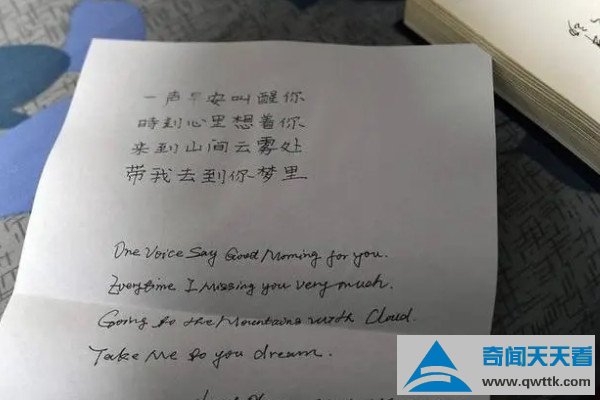 一声早安叫醒你
時刻心里想着你
来到山间云雾处
带我去到你梦里
One Voice Say Good Morning for you.
Everytime I Missing you very much.
Going to the Mountains with Cloud.
Take Me to you dream.
奇闻天天看
www.qwttk.com